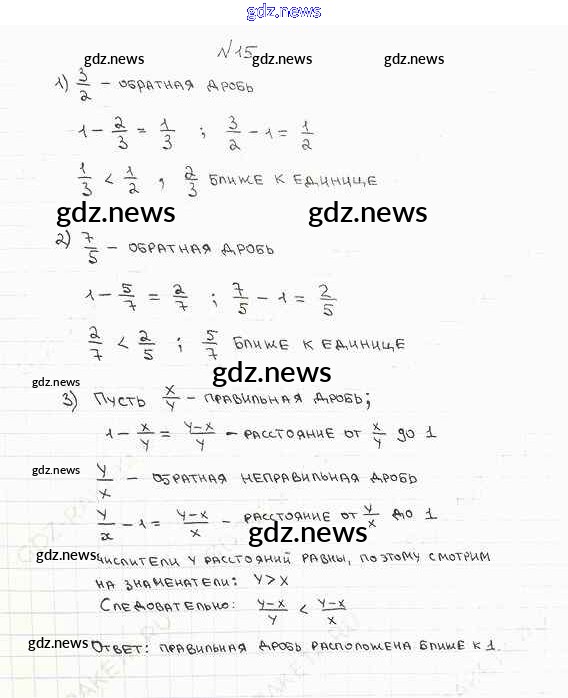 gdz.news
№15
gdz.news gdz.news gdz.news
1) 3/2 – ОБРАТНАЯ ДРОБЬ
1 – 2/3 = 1/3 ; 3/2 – 1 = 1/2
1/3 < 1/2 , 2/3 БЛИЖЕ К ЕДИНИЦЕ
gdz.news gdz.news
2) 7/5 – ОБРАТНАЯ ДРОБЬ
1 – 5/7 = 2/7 ; 7/5 – 1 = 2/5
2/7 < 2/5 ; 5/7 БЛИЖЕ К ЕДИНИЦЕ
gdz.news
gdz.news
3) ПУСТЬ x/y – ПРАВИЛЬНАЯ ДРОБЬ;
1 – x/y = y–x/y – РАССТОЯНИЕ ОТ x/y ДО 1
gdz.news
y/x – ОБРАТНАЯ НЕПРАВИЛЬНАЯ ДРОБЬ
y/x – 1 = y–x/x – РАССТОЯНИЕ ОТ y/x ДО 1
gdz.news
gdz.news
ЧИСЛИТЕЛИ У РАССТОЯНИЙ РАВНЫ, ПОЭТОМУ СМОТРИМ
НА ЗНАМЕНАТЕЛИ: y > x
СЛЕДОВАТЕЛЬНО: y–x/y < y–x/x
gdz.news
ОТВЕТ: ПРАВИЛЬНАЯ ДРОБЬ РАСПОЛОЖЕНА БЛИЖЕ К 1.